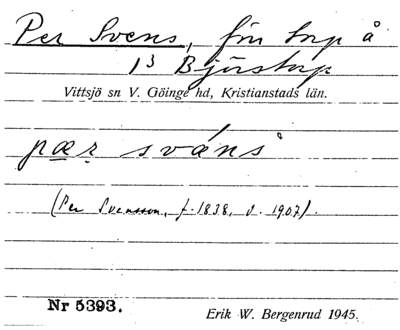 Per Svens, fru torp å
1³ Björstorp
Vittsjö sn V. Göinge hd, Kristianstads län.
pær sváns
(Per Svensson, f. 1838, d. 1907).
Nr 5393.
Erik W. Bergenrud 1945.